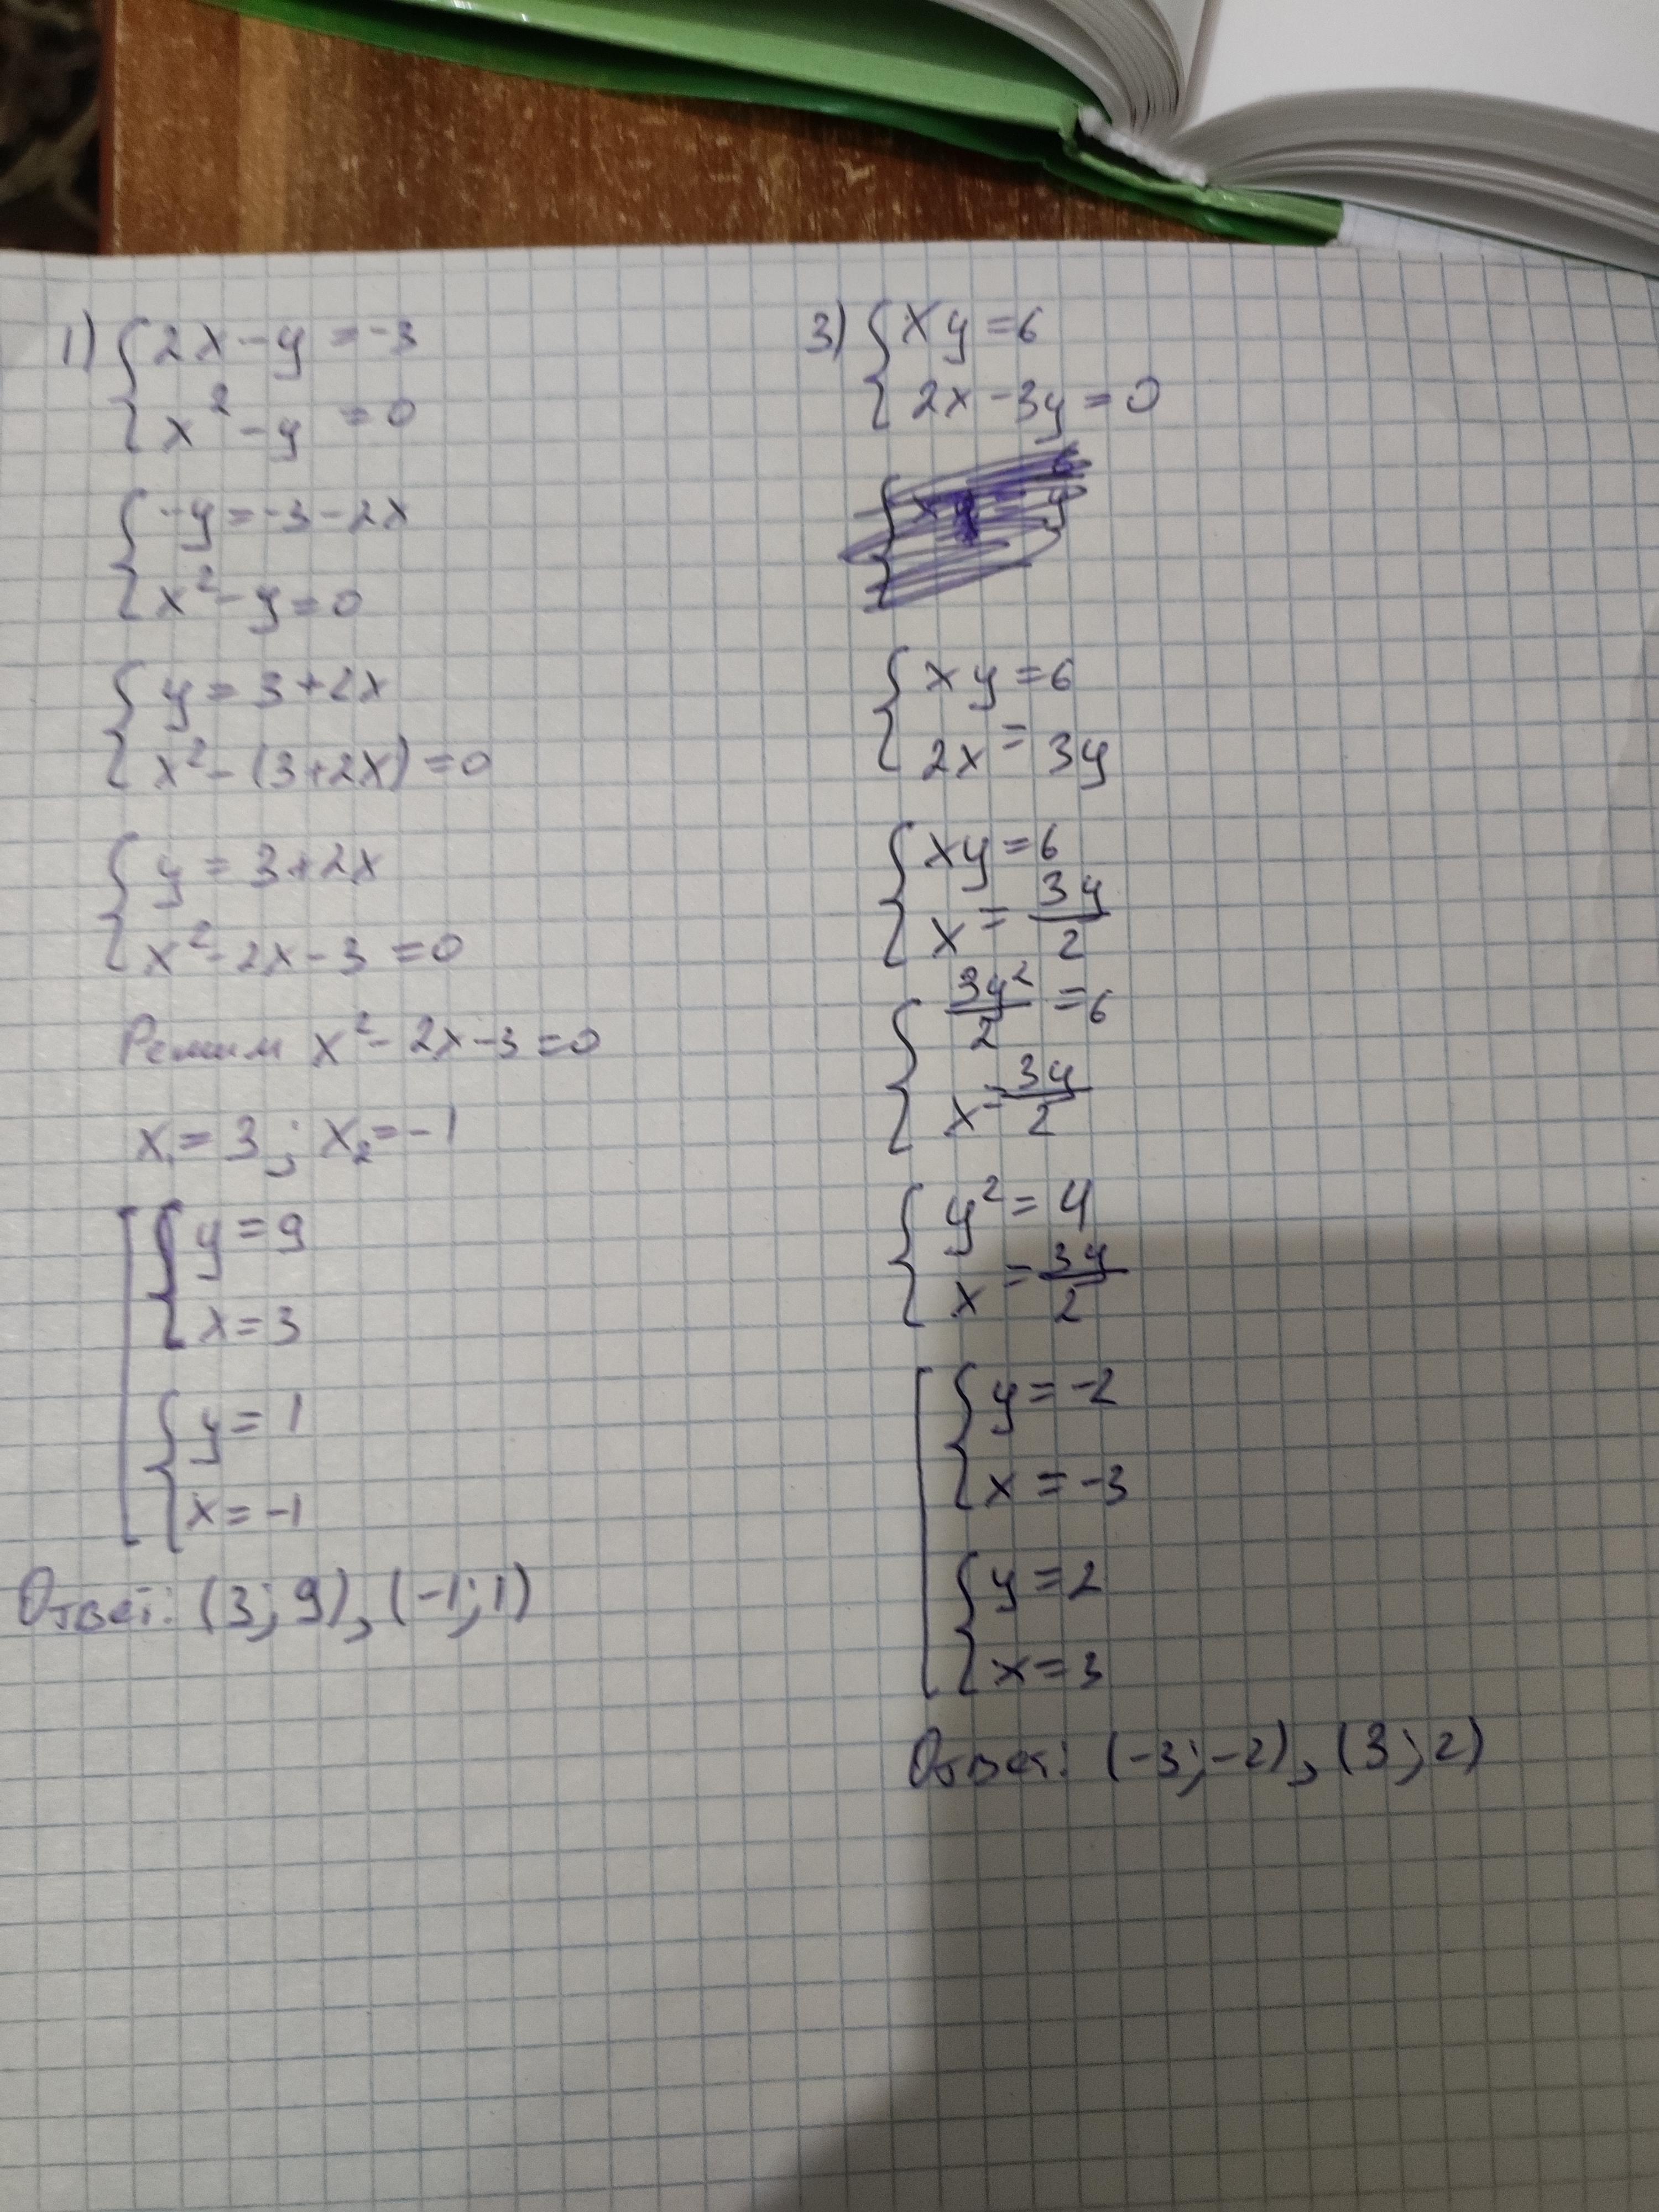 1) { 2x - y = -3
x² - y = 0
{ -y = -3 - 2x
x² - y = 0
{ y = 3 + 2x
x² - (3 + 2x) = 0
{ y = 3 + 2x
x² - 2x - 3 = 0
Решим x² - 2x - 3 = 0
x₁ = 3 ; x₂ = -1
[ { y = 9
x = 3
{ y = 1
x = -1
Ответ: (3; 9), (-1; 1)
3) { xy = 6
2x - 3y = 0
{ xy = 6
2x = 3y
{ xy = 6
x = 3y/2
{ 3y²/2 = 6
x = 3y/2
{ y² = 4
x = 3y/2
[ { y = -2
x = -3
{ y = 2
x = 3
Ответ: (-3; -2), (3; 2)